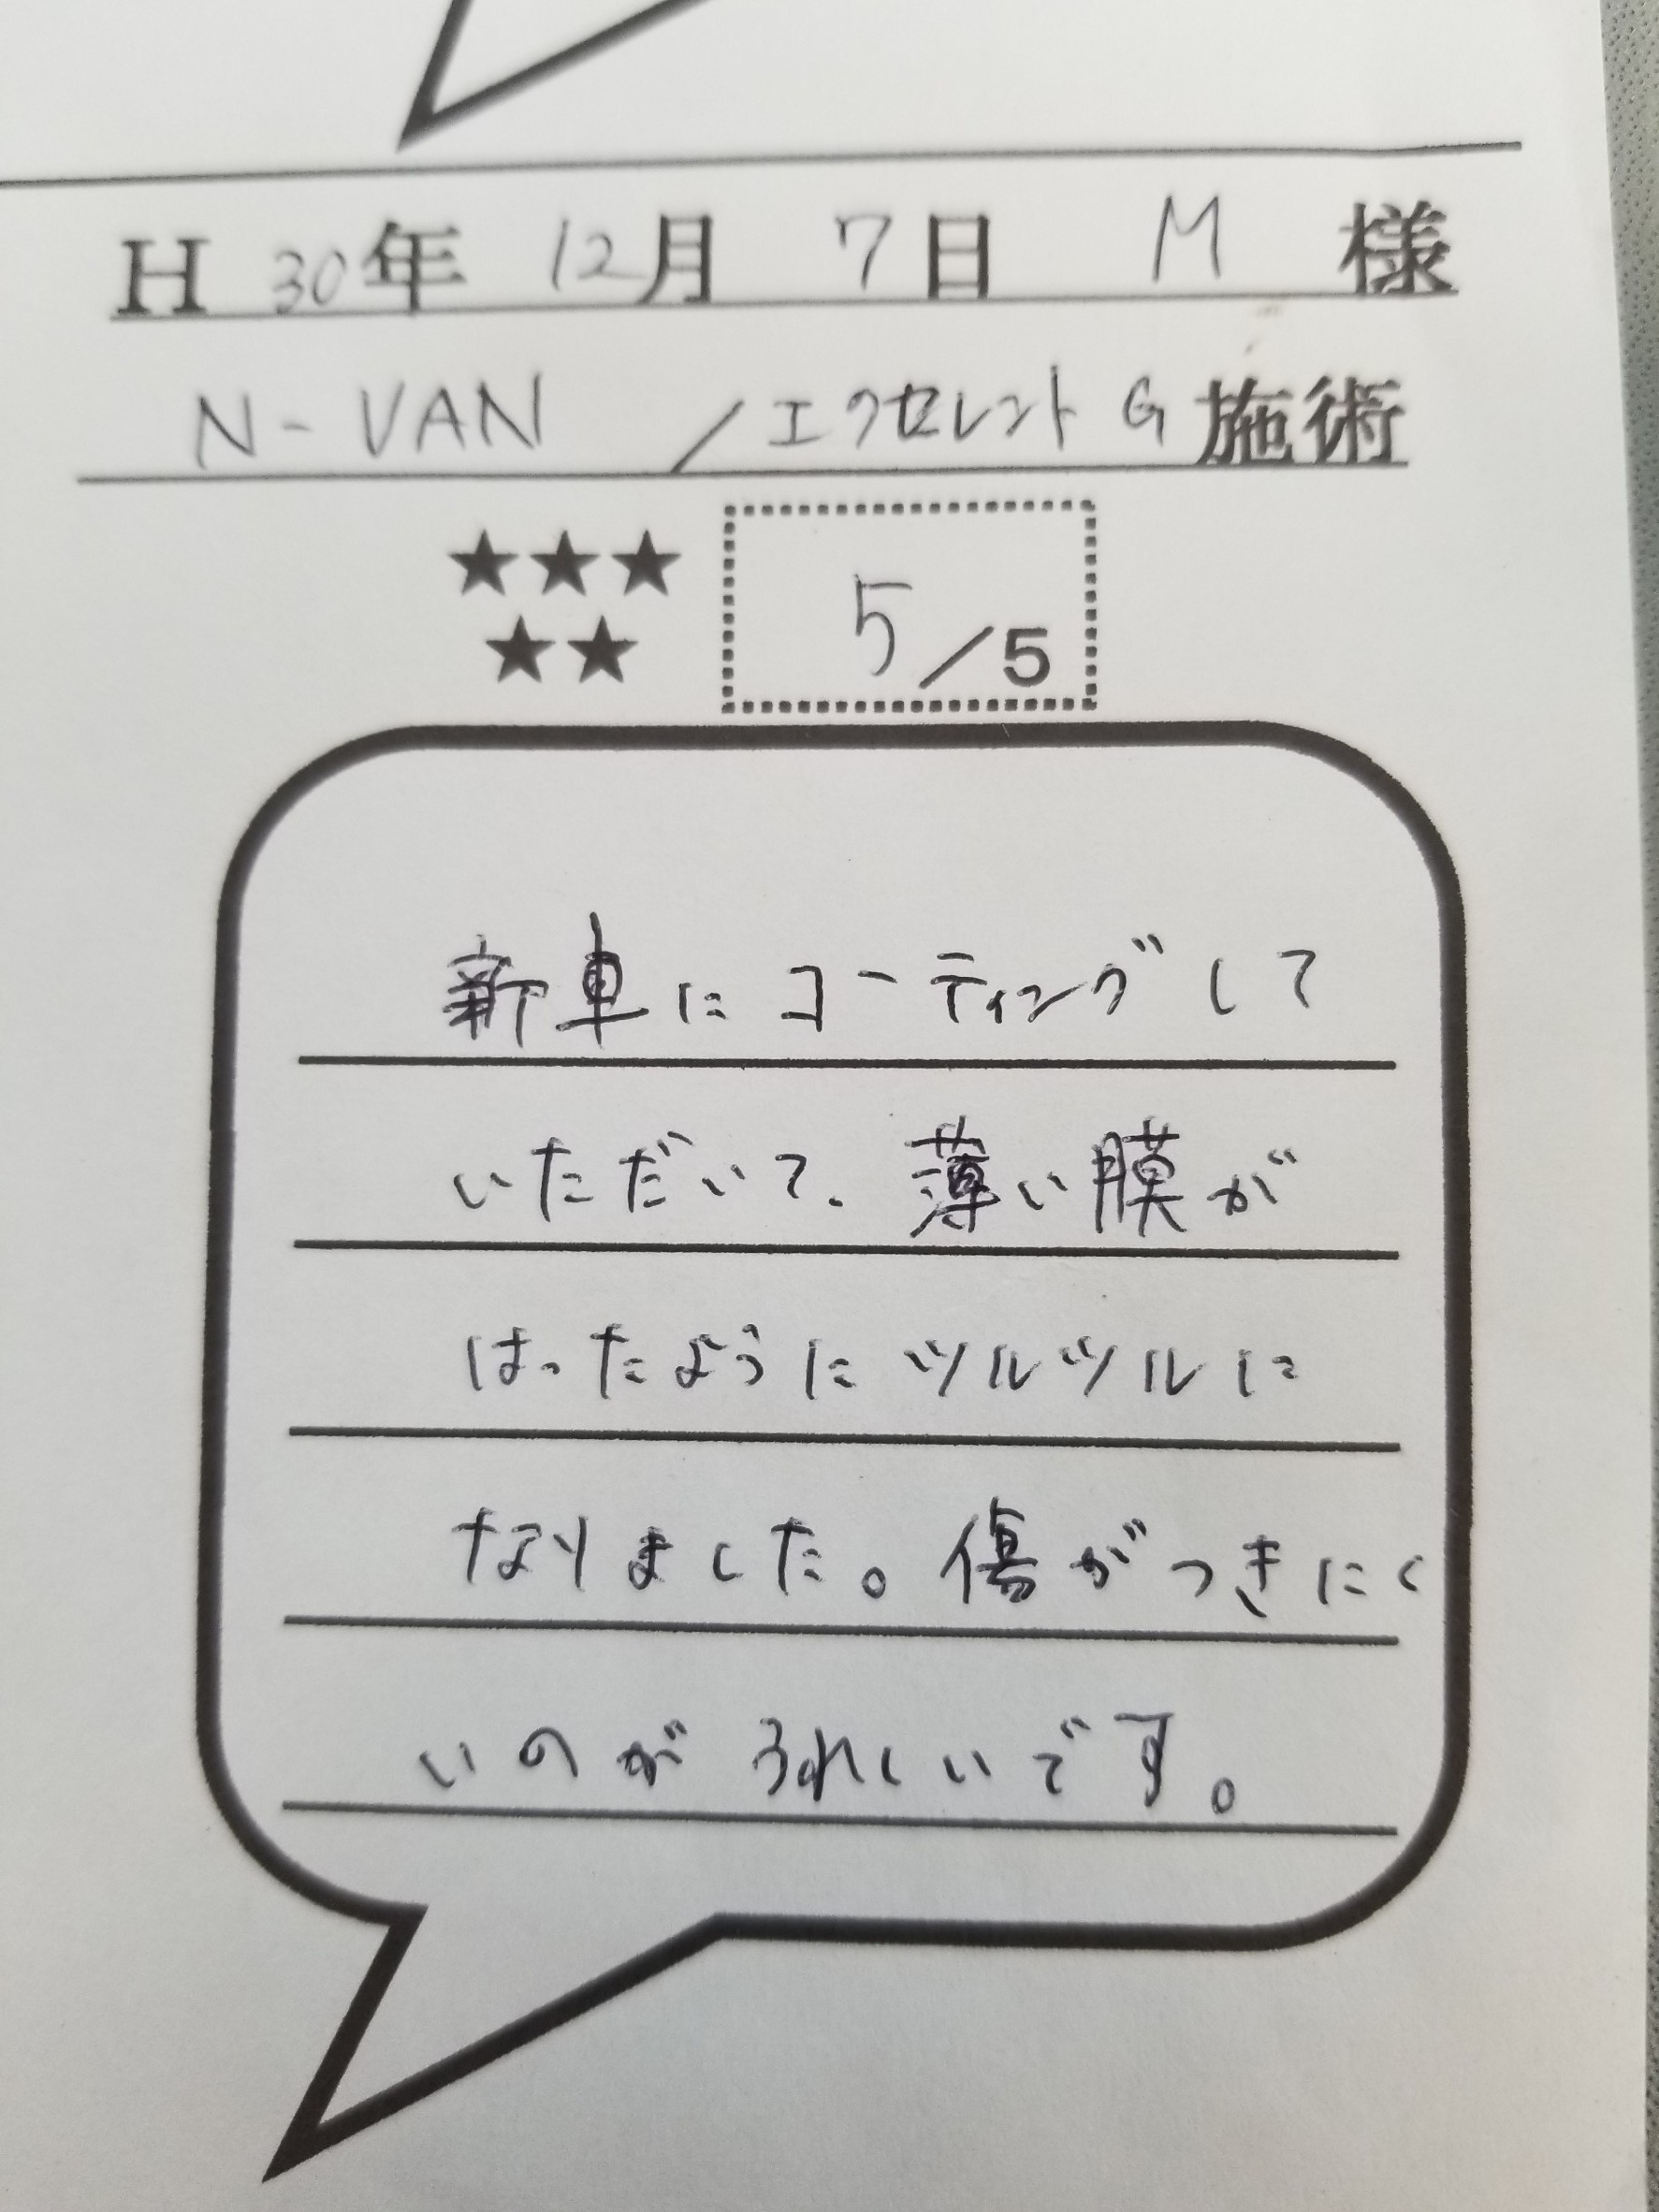 H 30年 12月 7日 M 様
N-VAN /エクセレントG施術
★★★
★★
5/5
新車にコーティングして
いただいて、薄い膜が
はったようにツルツルに
なりました。傷がつきにく
いのがうれしいです。